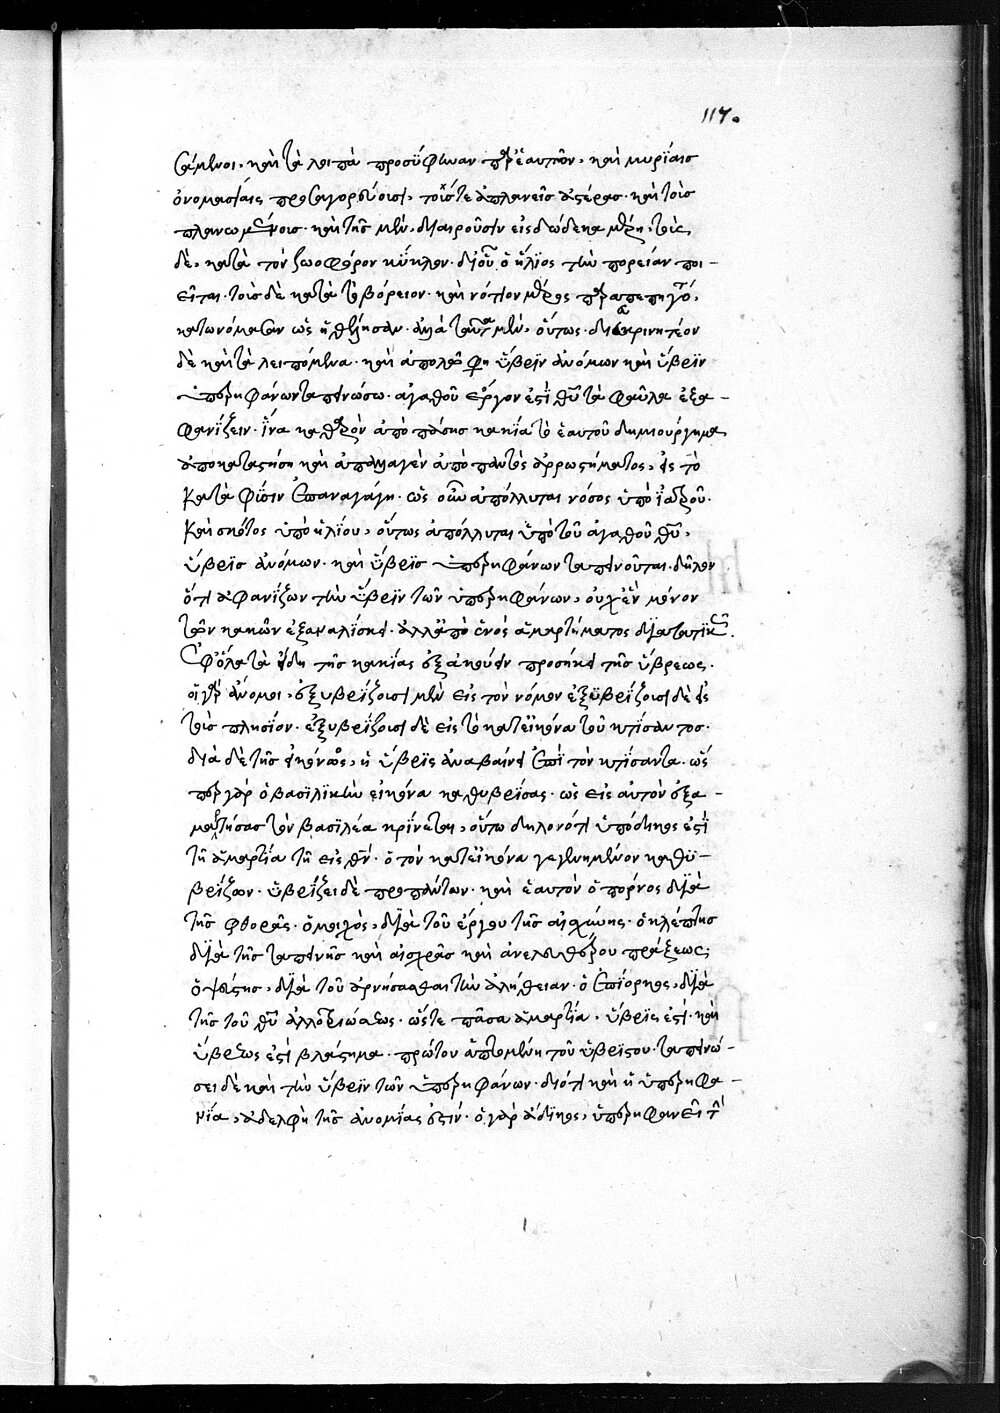 117.
σάμενοι, καὶ τὰ λοιπὰ προσύφηναν παρ' ἑαυτῶν, καὶ μυρίαις
ὀνομασίαις προσαγορεύουσι, τούς τε ἀπλανεῖς ἀστέρας· καὶ τοὺς
πλανωμένους· καὶ τῆς μὲν, διαιροῦσιν εἰς δώδεκα μέρη, τοὺς
δὲ, κατὰ τὸν ζωοφόρον κύκλον· δι' οὗ ὁ ἥλιος τὴν πορείαν ποι-
εῖται· τοὺς δὲ κατὰ τὸ βόρειον· καὶ νότιον μέρος
κατωνόμασαν ὡς ἠθέλησαν· ἀλλὰ ταῦτα μὲν, οὕτως· διακρινητέον
δὲ καὶ τὰ λειπόμενα· καὶ ἀπολεῖ φη ὕβριν ἀνόμων καὶ ὕβριν
ὑπερηφάνων ταπεινώσω· ἀγαθοῦ ἔργον ἐστὶ θεοῦ τὰ φαῦλα ἐξα-
φανίζειν· ἵνα καθαρὸν ἀπὸ πάσης κακίας τὸ ἑαυτοῦ δημιούργημα
ἀποκαταστήση καὶ ἀπαλλαγὲν ἀπὸ παντὸς ἀρρωστήματος, εἰς τὸ
κατὰ φύσιν ἐπαναγάγη· ὡς οὖν ἀπόλλυται νόσος ὑπὸ ἰατροῦ·
καὶ σκότος ὑπὸ ἡλίου, οὕτως ἀπόλλυται ὑπὸ τοῦ ἀγαθοῦ θεοῦ,
ὕβρις ἀνόμων· καὶ ὕβρις ὑπερηφάνων ταπεινοῦται· δῆλον
ὅτι ἀφανίζων τὴν ὕβριν τῶν ὑπερηφάνων, οὐχ ἓν μόνον
τῶν κακῶν ἐξαναλίσκει· ἀλλ' ἀπὸ ἑνὸς ἁμαρτήματος
ὅλα τὰ εἴδη τῆς κακίας ἐξακούειν προσήκει τῆς ὕβρεως·
οἱ γὰρ ἄνομοι, ἐξυβρίζουσι μὲν εἰς τὸν νόμον ἐξυβρίζουσι δὲ εἰς
τοὺς πλησίον· ἐξυβρίζουσι δὲ εἰς τὸ κατ' εἰκόνα τοῦ κτίσαντος·
διὰ δὲ τῆς εἰκόνος, ἡ ὕβρις ἀναβαίνει ἐπὶ τὸν κτίσαντα· ὡς
περ γὰρ ὁ βασιλικὴν εἰκόνα καθυβρίσας· ὡς εἰς αὐτὸν ἐξα-
μαρτήσας τὸν βασιλέα κρίνεται, οὕτω δηλονότι ὑπόδικός ἐστὶ
τῇ ἁμαρτία τῇ εἰς θεὸν· ὁ τὸν κατ' εἰκόνα γεγενημένον καθυ-
βρίζων· ὑβρίζει δὲ πρὸ πάντων· καὶ ἑαυτὸν ὁ πόρνος διὰ
τῆς φθορᾶς· ὁ μοιχὸς, διὰ τοῦ ἔργου τῆς αἰσχύνης· ὁ κλέπτης
διὰ τῆς ταπεινῆς καὶ αἰσχρᾶς καὶ ἀνελευθέρου πράξεως·
ὁ ψεύστης, διὰ τοῦ ἀρνήσασθαι τὴν ἀλήθειαν· ὁ ἐπίορκος, διὰ
τῆς τοῦ θεοῦ ἀλλοτριώσεως· ὥστε πᾶσα ἁμαρτία, ὕβρις ἐστὶ· καὶ
ὕβρεως ἐστὶ βλάστημα· πρῶτον ἁπτομένη τοῦ ὑβριστοῦ· ταπεινώ-
σει δὲ καὶ τὴν ὕβριν τῶν ὑπερηφάνων· διότι καὶ ἡ ὑπερηφα-
νία, ἀδελφὴ τῆς ἀνομίας ἐστίν· ὁ γὰρ ἄδικος, ὑπερηφανεῖ